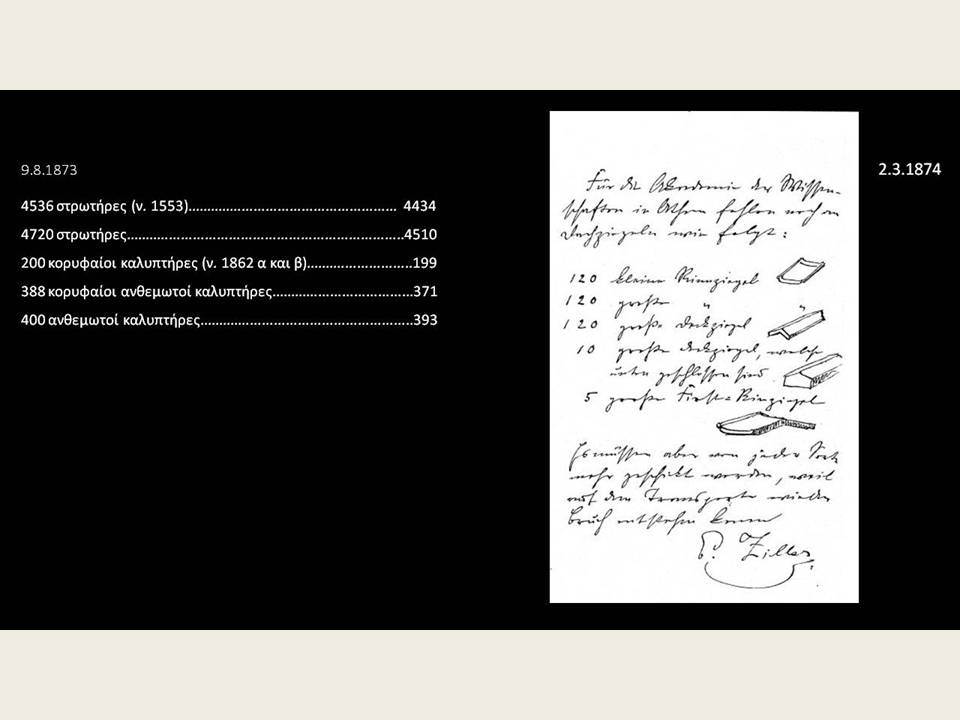 9.8.1873
4536 στρωτήρες (ν. 1553)................................................ 4434
4720 στρωτήρες................................................................4510
200 κορυφαίοι καλυπτήρες (ν. 1862 α και β)........................199
388 κορυφαίοι ανθεμωτοί καλυπτήρες................................371
400 ανθεμωτοί καλυπτήρες................................................393
2.3.1874
Für die Akademie der Wissen-
schaften in Athen fehlen noch an
Dachziegeln wie folgt:
120 kleine Rinnziegel
120 große "
120 große Deckziegel "
10 große Deckziegel, welche
unten geschlossen sind
5 große First-Rinziegel
Es müssen aber von jeder Sorte
mehr geschikt werden, weil
auf dem Transporte wieder
Bruch entstehen kann
E. Ziller